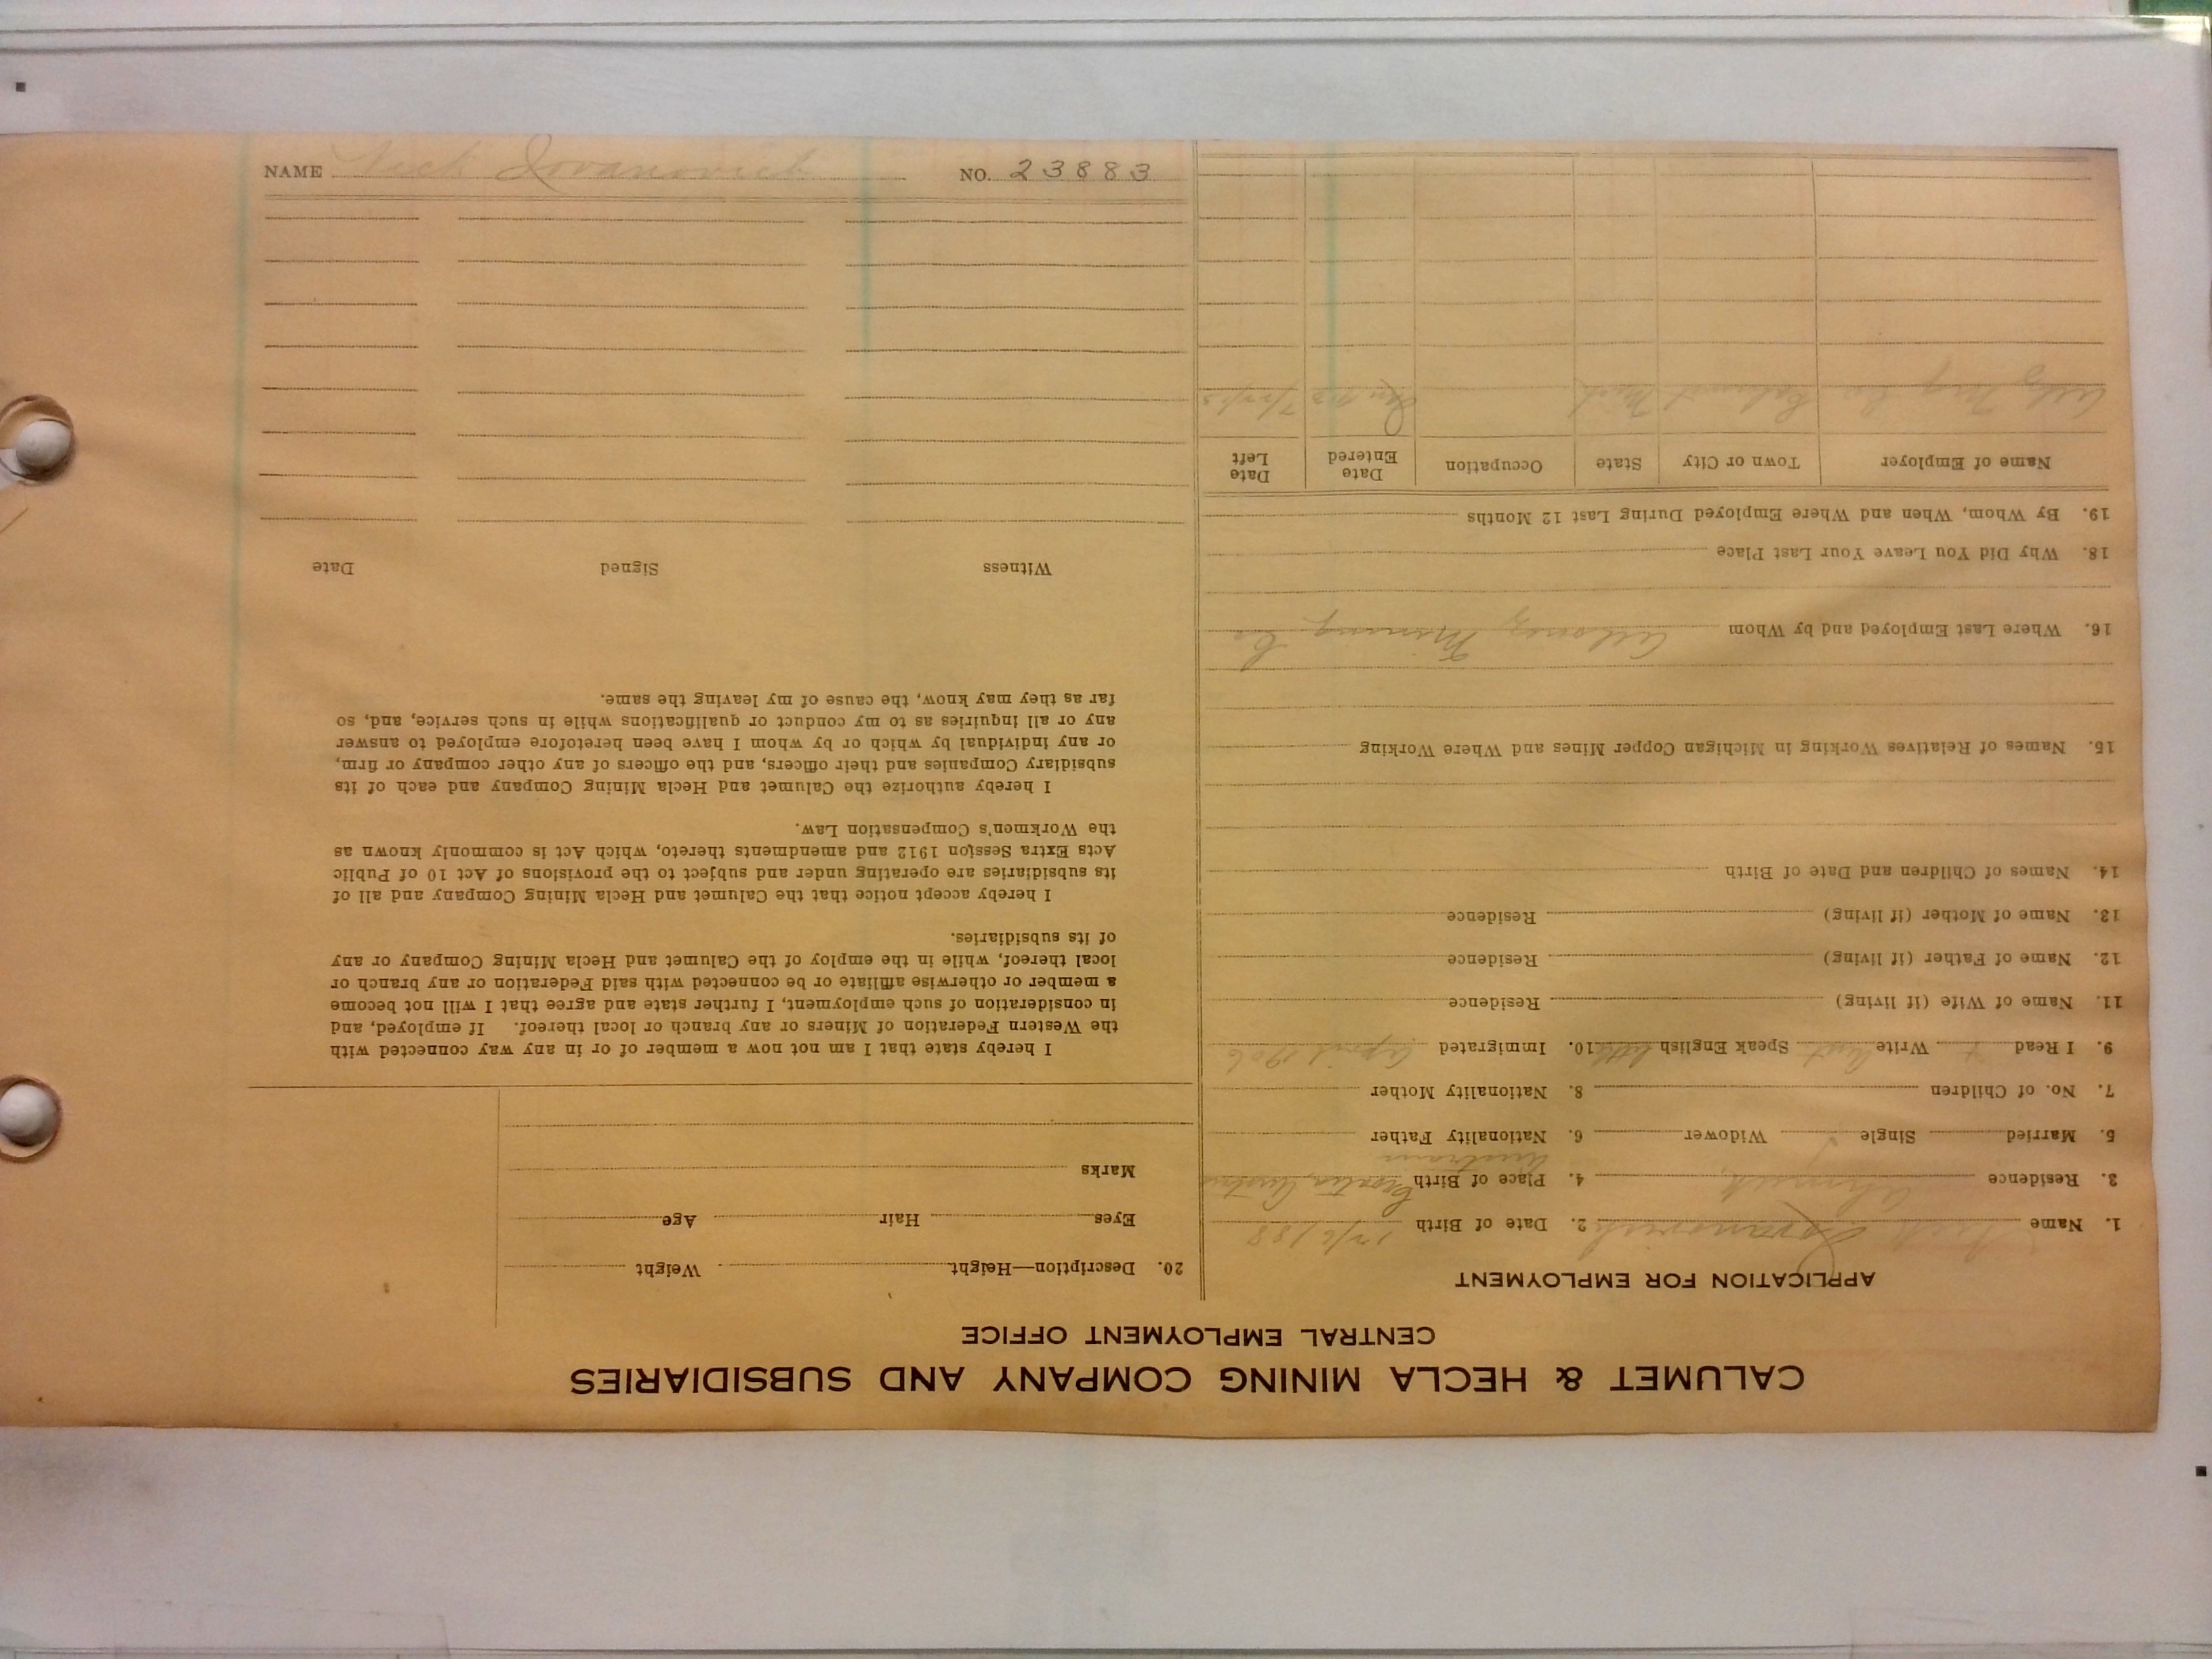 CALUMET & HECLA MINING COMPANY AND SUBSIDIARIES
CENTRAL EMPLOYMENT OFFICE
APPLICATION FOR EMPLOYMENT
1. Name Nick Jovanovich 2. Date of Birth 12/6/88
3. Residence Ahmeek 4. Place of Birth Croatia, Austria
5. Married Single Widower 6. Nationality Father
7. No. of Children 8. Nationality Mother
9. I Read Write Speak English little 10. Immigrated April 1906
11. Name of Wife (if living) Residence
12. Name of Father (if living) Residence
13. Name of Mother (if living) Residence
14. Names of Children and Date of Birth
15. Names of Relatives Working in Michigan Copper Mines and Where Working
16. Where Last Employed and by Whom Allouez Mining Co
18. Why Did You Leave Your Last Place
19. By Whom, When and Where Employed During Last 12 Months
Name of Employer Town or City State Occupation Date Entered Date Left
Mng Co Calumet Mich
20. Description—Height Weight
Eyes Hair Age
Marks
I hereby state that I am not now a member of or in any way connected with
the Western Federation of Miners or any branch or local thereof. If employed, and
in consideration of such employment, I further state and agree that I will not become
a member or otherwise affiliate or be connected with said Federation or any branch or
local thereof, while in the employ of the Calumet and Hecla Mining Company or any
of its subsidiaries.
I hereby accept notice that the Calumet and Hecla Mining Company and all of
its subsidiaries are operating under and subject to the provisions of Act 10 of Public
Acts Extra Session 1912 and amendments thereto, which Act is commonly known as
the Workmen's Compensation Law.
I hereby authorize the Calumet and Hecla Mining Company and each of its
subsidiary Companies and their officers, and the officers of any other company or firm,
or any individual by which or by whom I have been heretofore employed to answer
any or all inquiries as to my conduct or qualifications while in such service, and, so
far as they may know, the cause of my leaving the same.
Witness Signed Date
NAME Nick Jovanovich NO. 23883